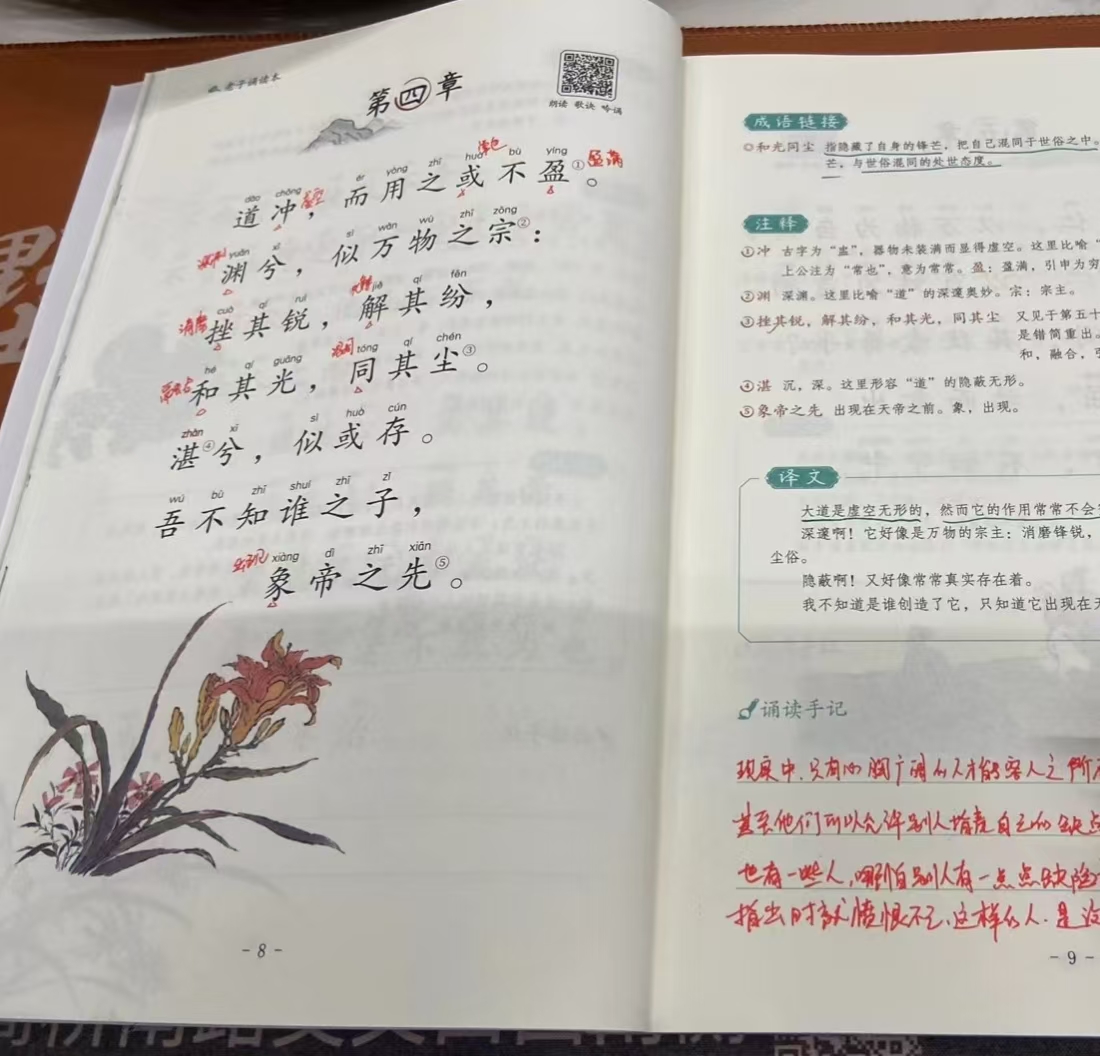 老子诵读本
第四章
朗读 歌诀 吟诵
dào chōng ér yòng zhī huò bù yíng
道冲，而用之或不盈①。
虚空
盈满
yuān xī sì wàn wù zhī zōng
渊兮，似万物之宗②：
cuò qí ruì jiě qí fēn
挫其锐，解其纷，
消磨
hé qí guāng tóng qí chén
和其光，同其尘③。
混同
zhàn xī sì huò cún
湛④兮，似或存。
wú bù zhī shuí zhī zǐ
吾不知谁之子，
xiàng dì zhī xiān
象帝之先⑤。
出现
- 8 -
成语链接
◎和光同尘 指隐藏了自身的锋芒，把自己混同于世俗之中。
芒，与世俗混同的处世态度。
注释
①冲 古字为“盅”，器物未装满而显得虚空。这里比喻“
上公注为“常也”，意为常常。盈：盈满，引申为穷
②渊 深渊。这里比喻“道”的深邃奥妙。宗：宗主。
③挫其锐，解其纷，和其光，同其尘 又见于第五十
是错简重出。
和，融合，引
④湛 沉，深。这里形容“道”的隐蔽无形。
⑤象帝之先 出现在天帝之前。象，出现。
译文
大道是虚空无形的，然而它的作用常常不会
深邃啊！它好像是万物的宗主：消磨锋锐，
尘俗。
隐蔽啊！又好像常常真实存在着。
我不知道是谁创造了它，只知道它出现在天
诵读手记
现实中，只有心胸广阔的人才能容人之所
甚至他们可以允许别人指责自己的缺点
也有一些人，哪怕别人有一点点缺陷
指出时就愤恨不已，这样的人，是没
- 9 -